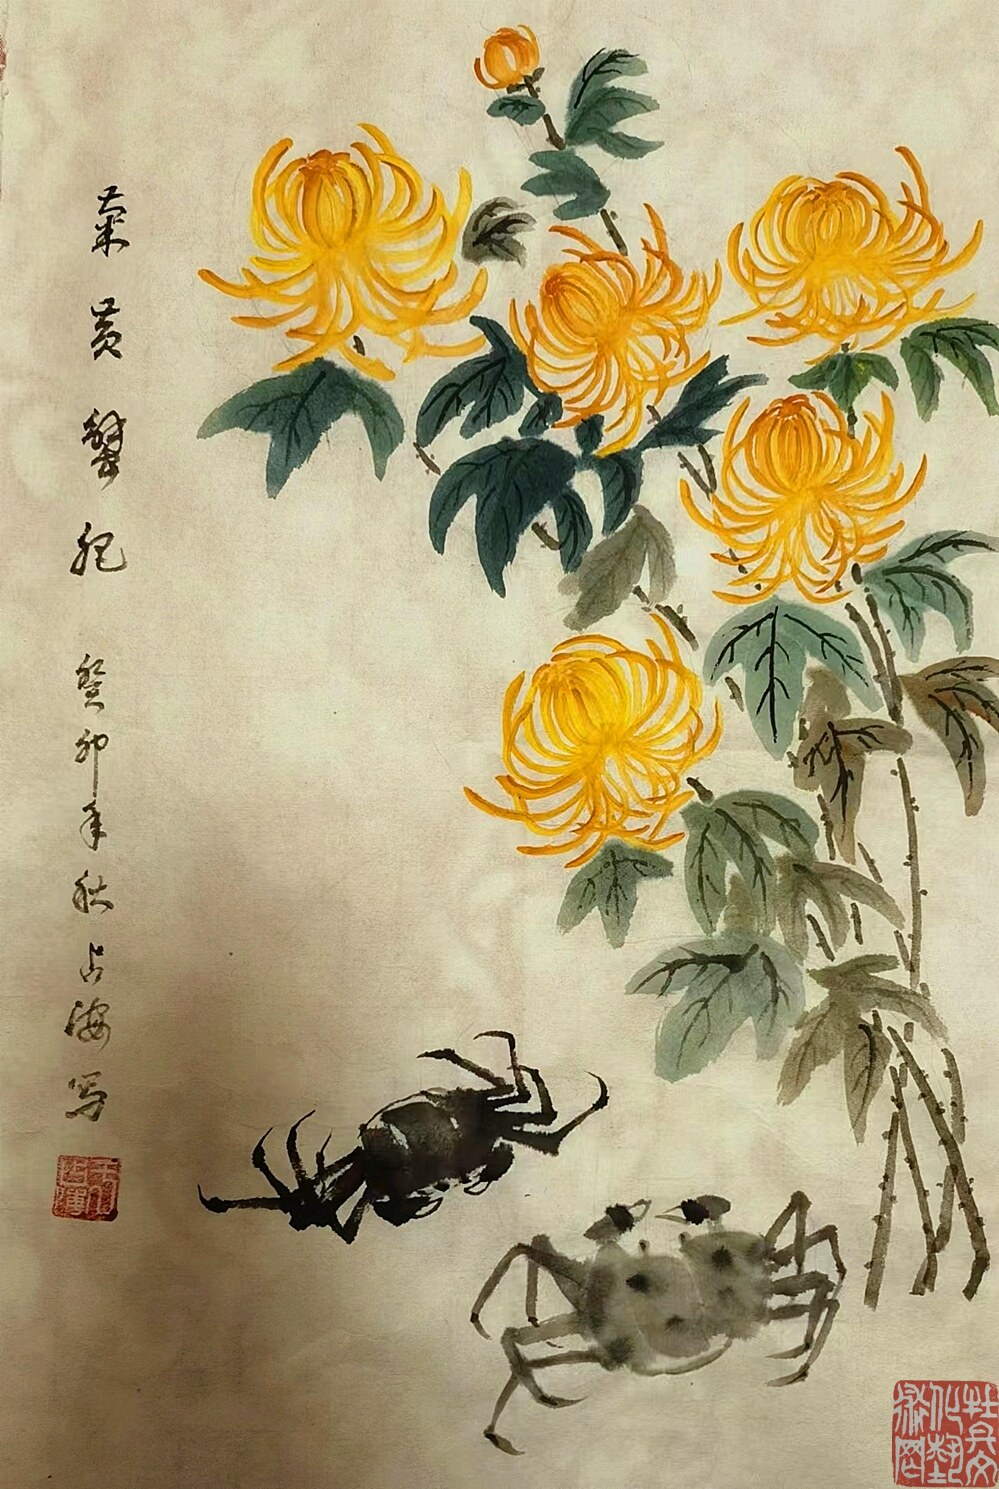 菊黄蟹肥 癸卯年秋占海写